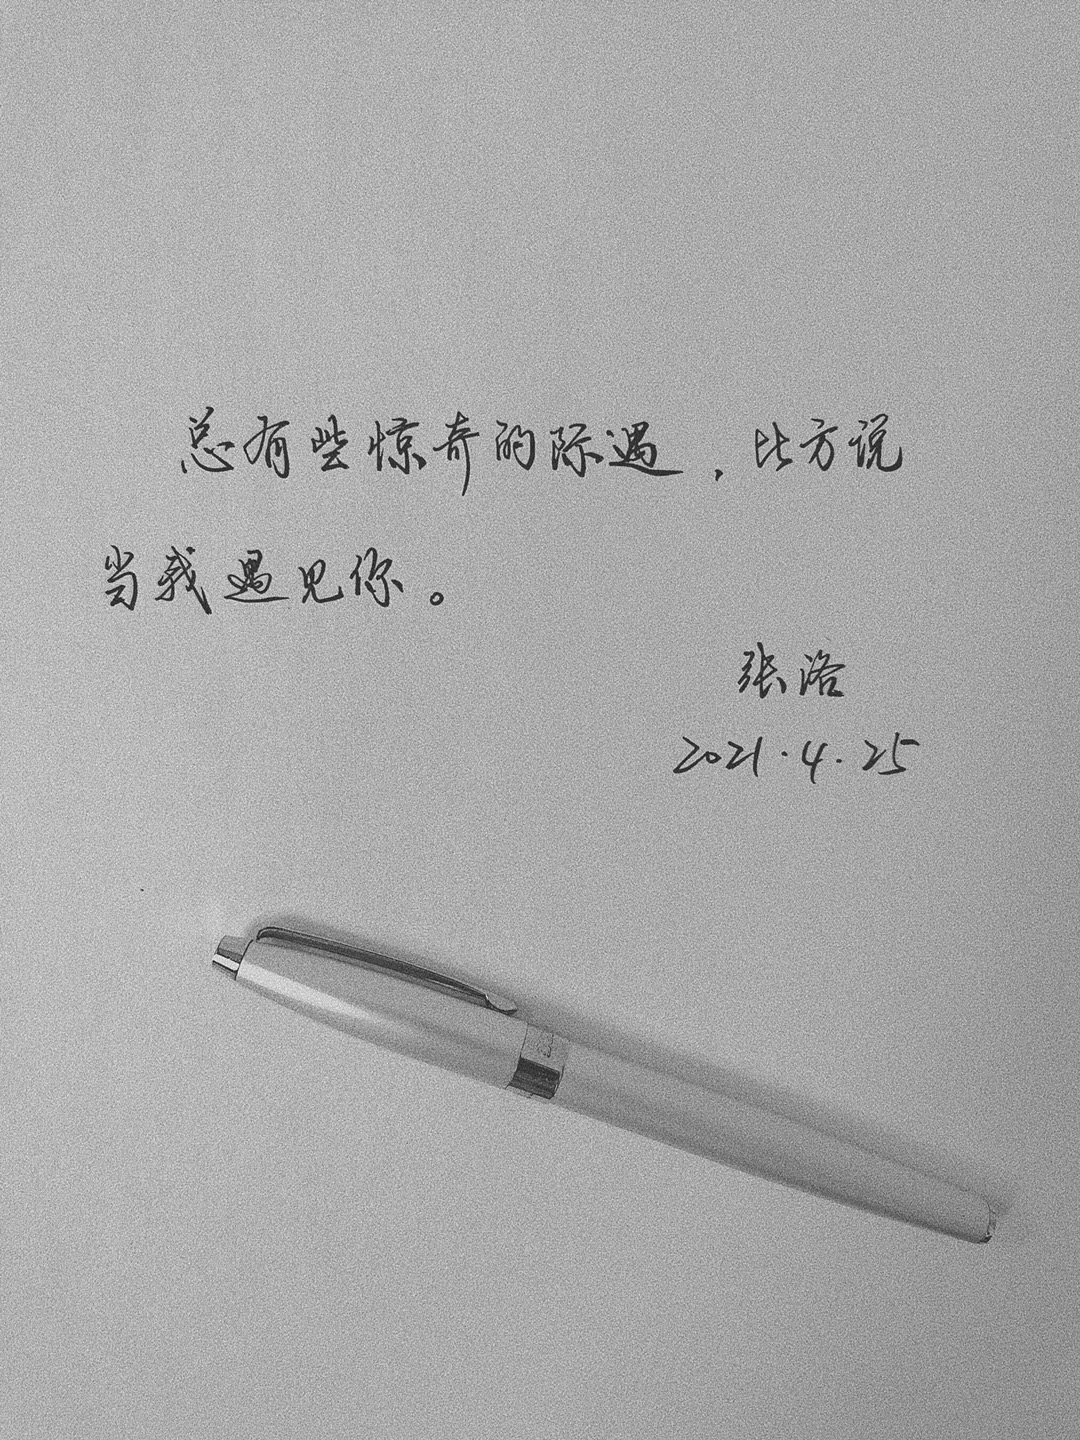 总有些惊奇的际遇，比方说
当我遇见你。
张洛
2021·4·25